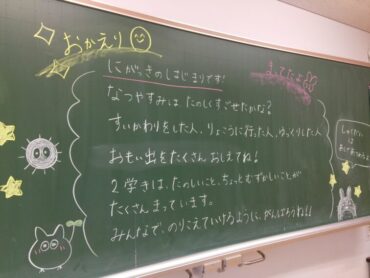 おかえり
まってたよ
にがっきのしはじまりです!
なつやすみは たのしくすごせたかな?
すいかわりをした人、りょこうに行った人、ゆっくりした人
おもい出をたくさん おしえてね!
2学きは、たのしいこと、ちょっとむずかしいことが
たくさん まっています。
みんなで、のりこえていけるように、がんばろうね!!
しゅくだい
は